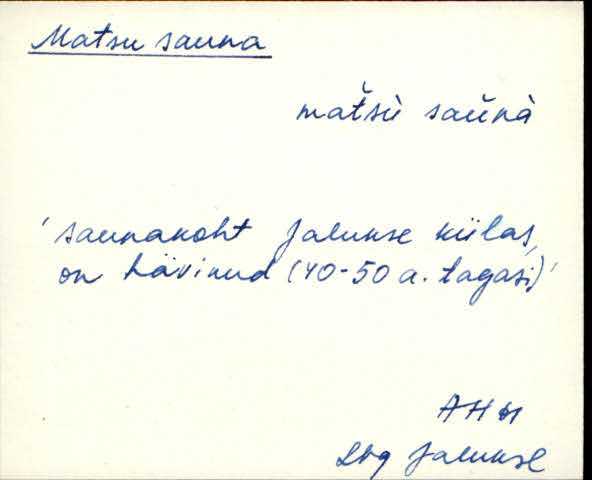 Matsu sauna
mat̆sù saŭnà
' saunakoht Jalukse külas,
on hävinud (40-50 a. tagasi)'
AH
Jalukse